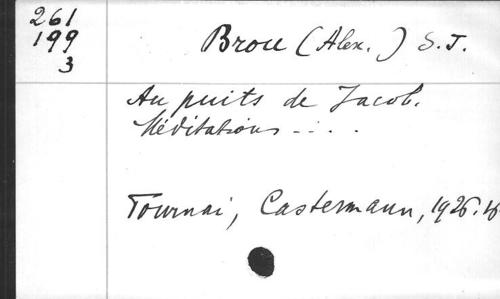 261
199
3
Brou (Alex.) S.J.
Au puits de Jacob.
Méditations - . . .
Tournai, Castermann, 1926.